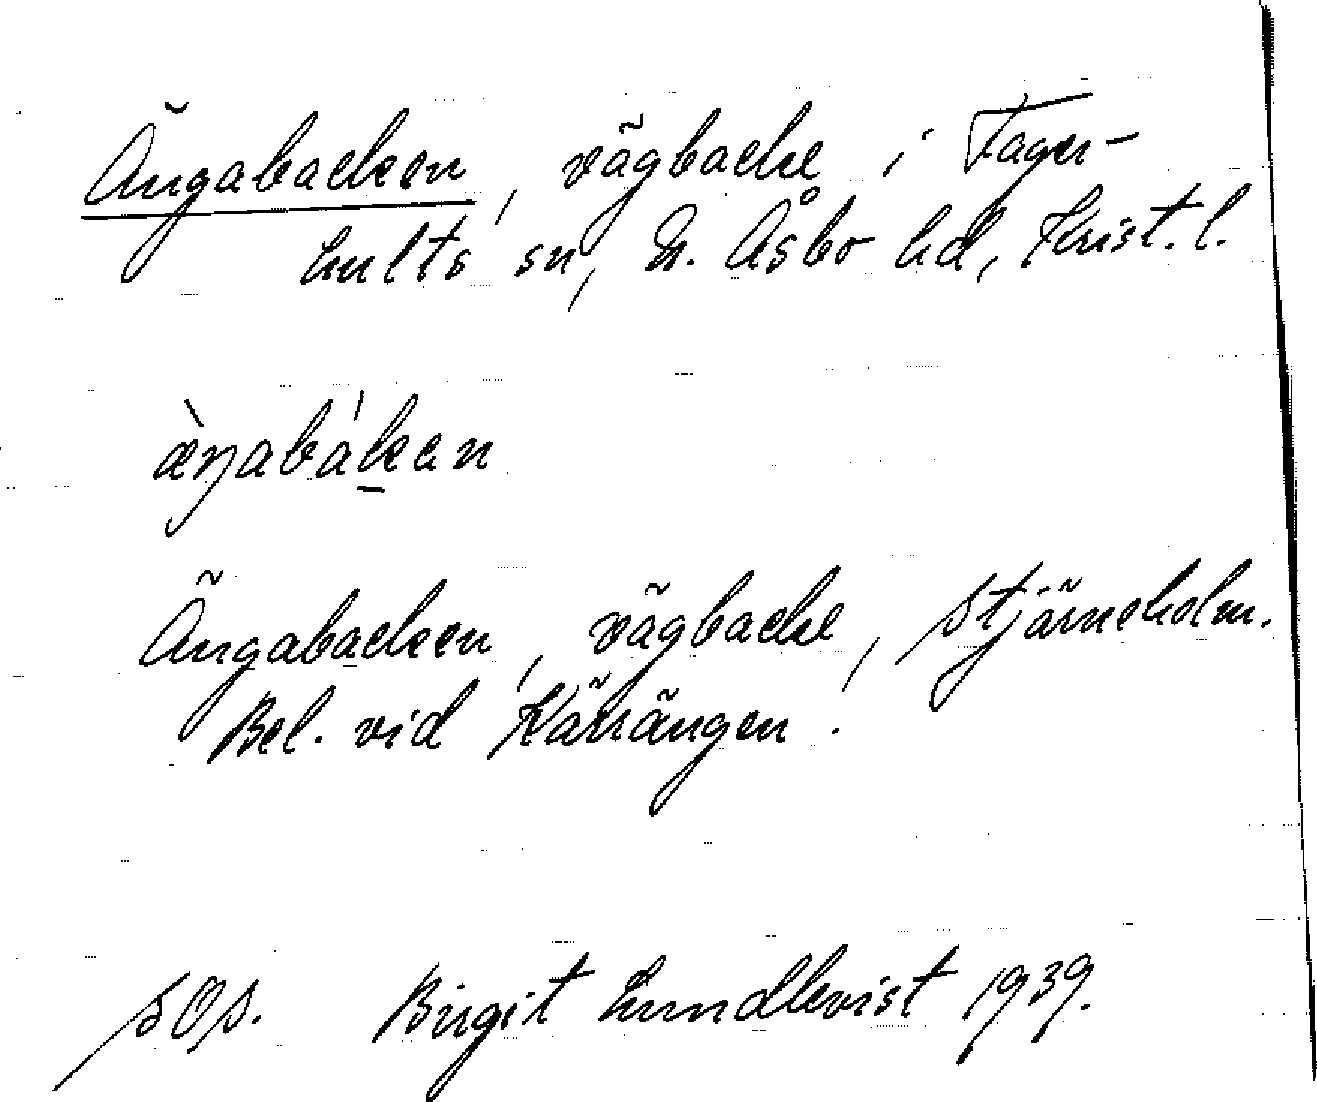 Ängabacken, vägbacke i Fager-
hults sn, N. Åsbo hd, Krist. l.
æ̀ŋabákan
Ängabacken, vägbacke, Stjärneholm.
Bel. vid Kärrängen.
Birgit Lundkvist 1939.